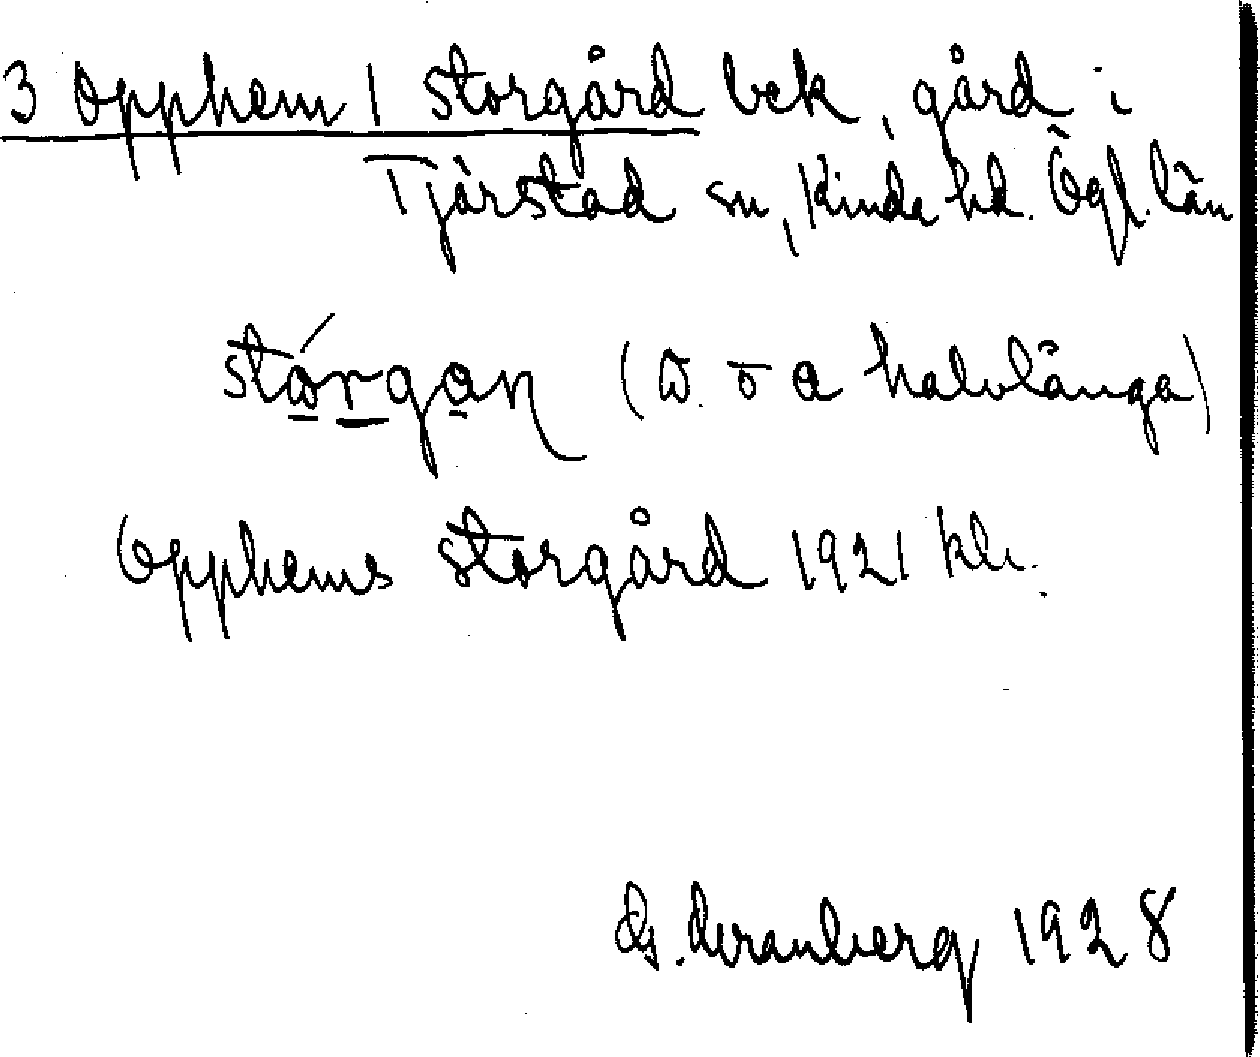 3 Opphem 1 Storgård bek, gård i
Tjärstad sn, Kinda hd. Ögl. län
stɷ́rgan (ɷ. o a halvlånga)
Opphems Storgård 1921 kh.
G. Granberg 1928